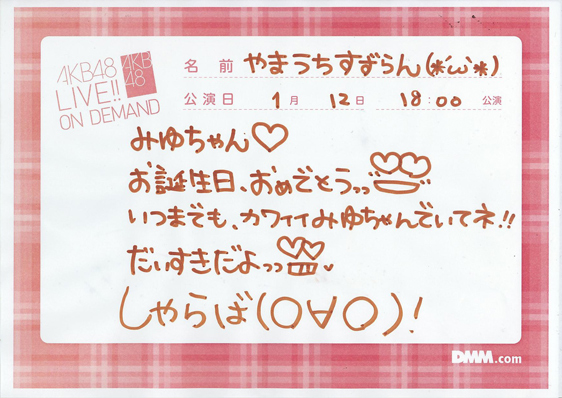 AKB48
LIVE!!
ON DEMAND
AKB
48
名前 やまうちすずらん(*´ω`*)
公演日 1月 12日 18:00 公演
みゆちゃん♡
お誕生日、おめでとうっっ
いつまでも、カワイイみゆちゃんでいてネ!!
だいすきだよっっ
しゃらば(○∀○)!
DMM.com